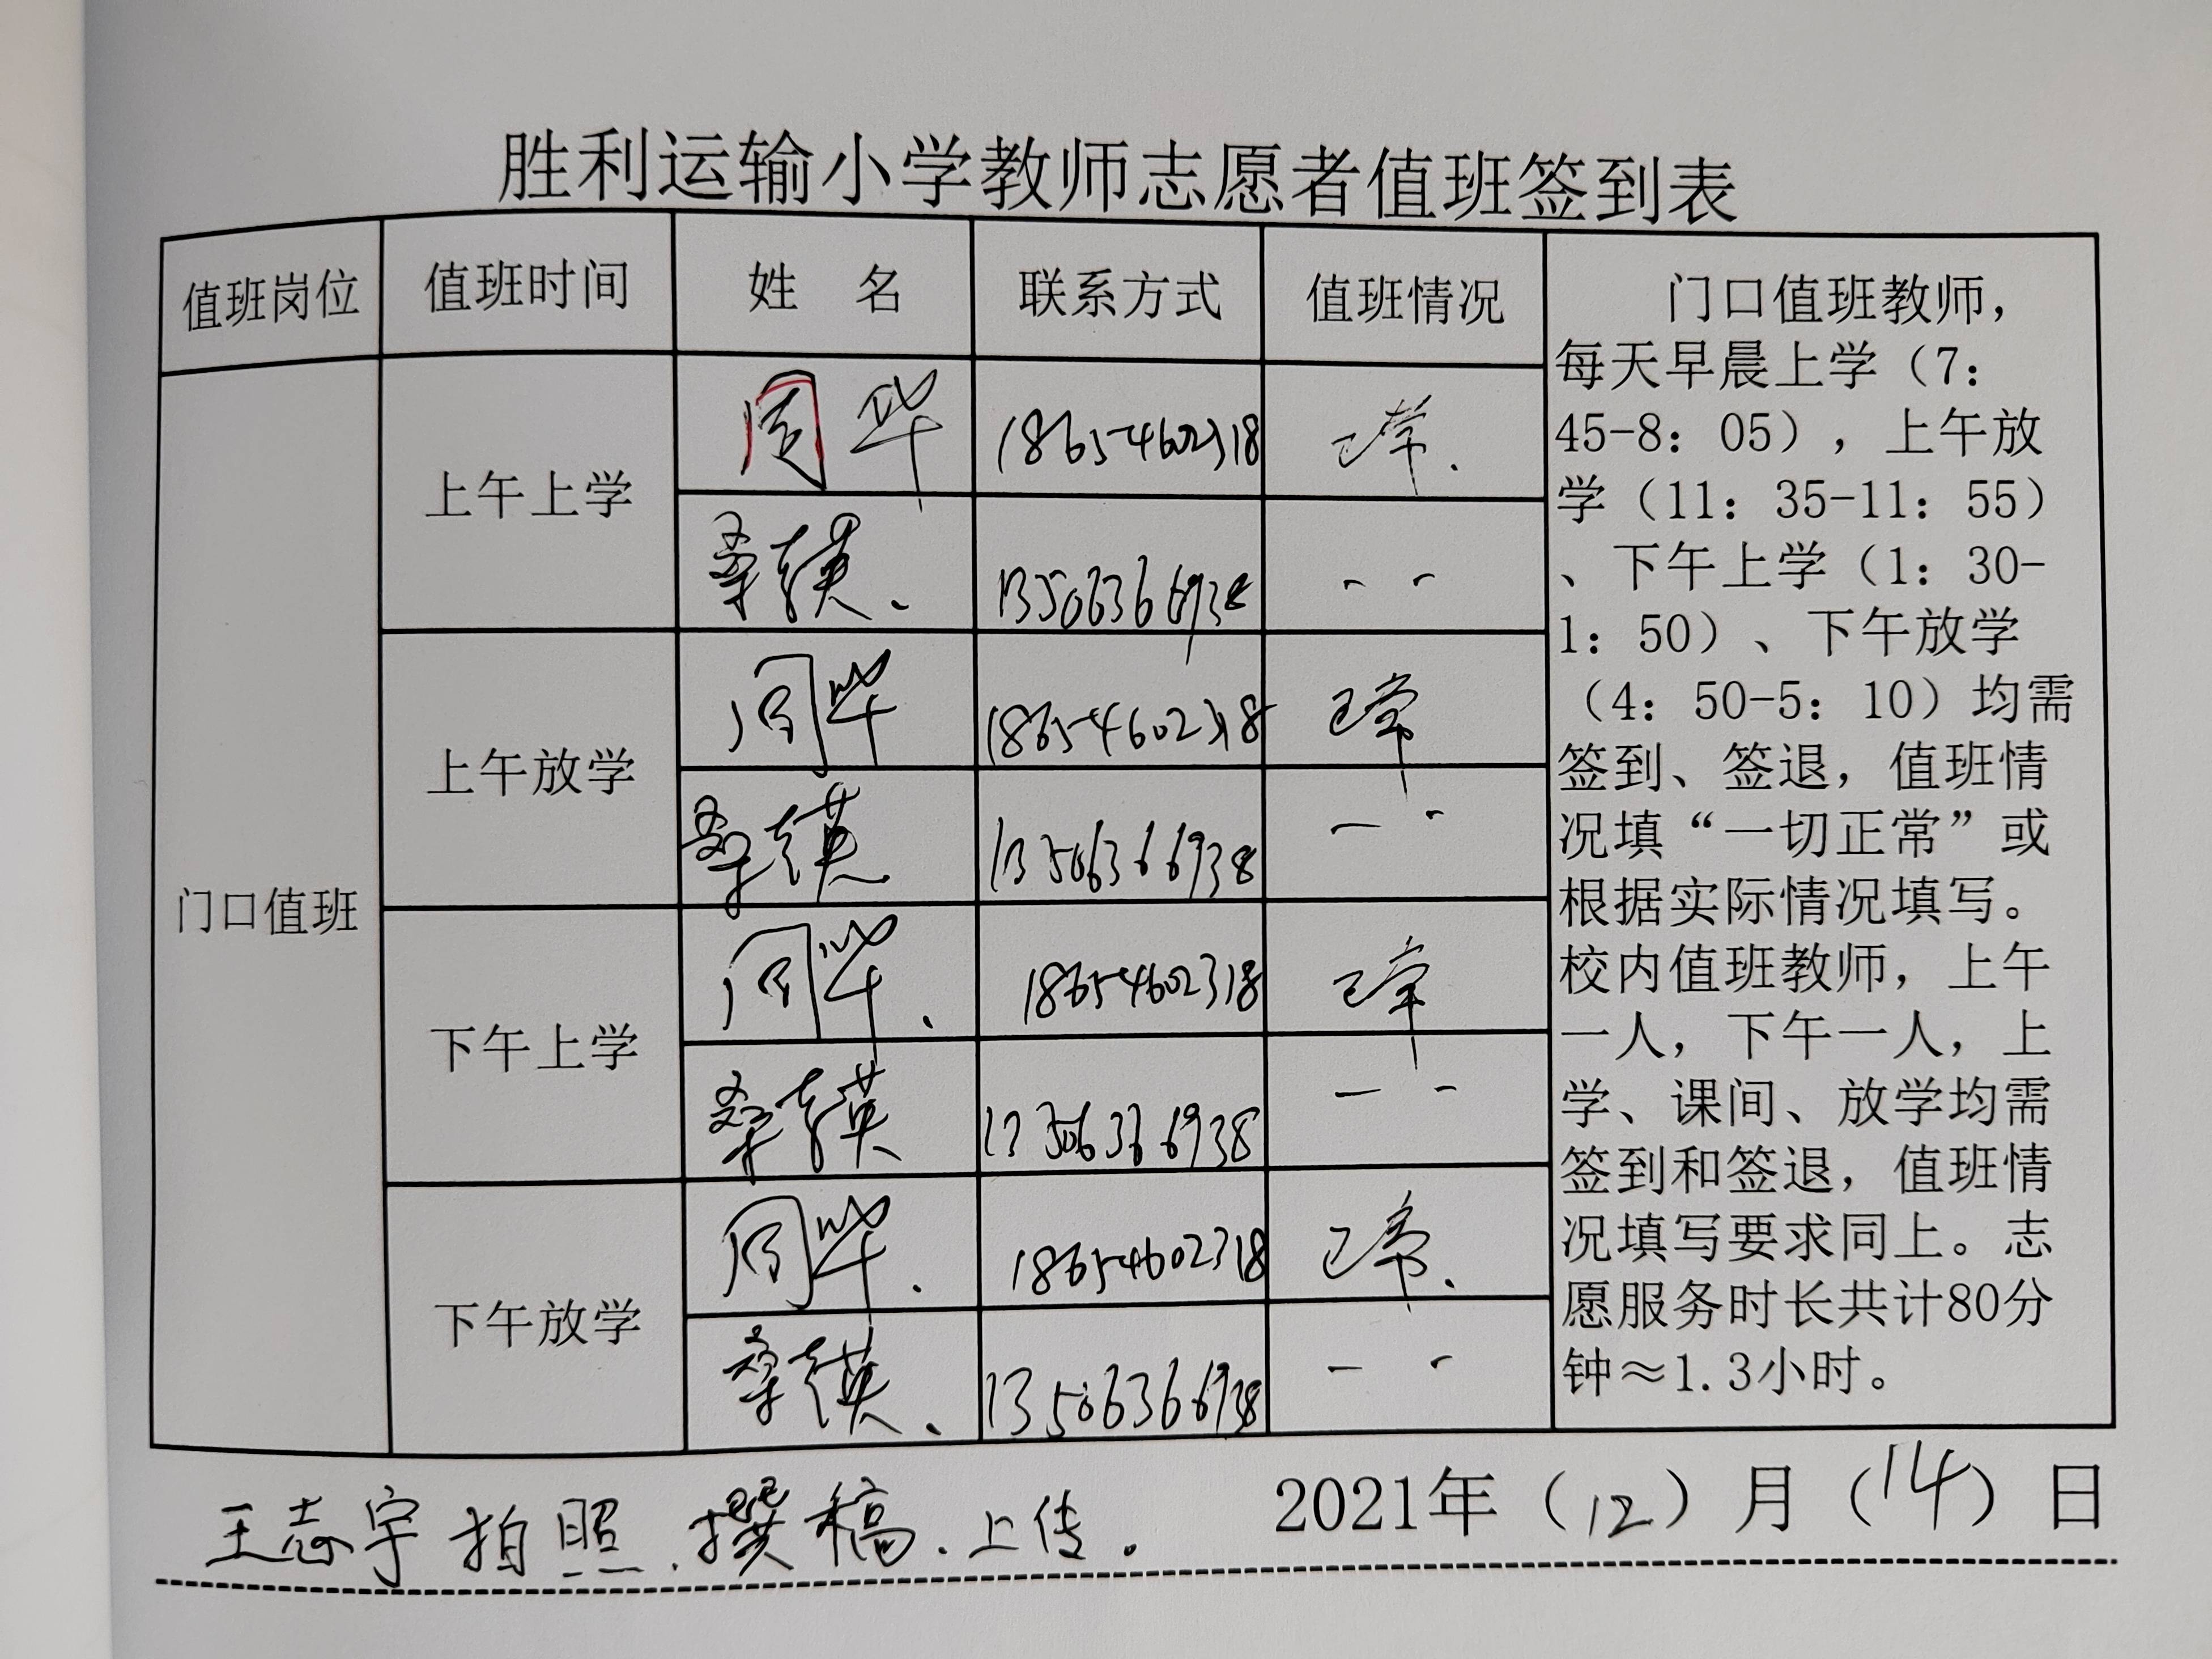 胜利运输小学教师志愿者值班签到表
值班岗位 值班时间 姓 名 联系方式 值班情况
门口值班
上午上学
周华 18654602318 正常.
13506366938 - -
上午放学
周华 18654602318 正常
13506366938 - -
下午上学
周华. 18654602318 正常
13506366938 - -
下午放学
周华. 18654602318 正常.
13506366938 - -
门口值班教师，
每天早晨上学（7：
45-8：05），上午放
学（11：35-11：55）
、下午上学（1：30-
1：50）、下午放学
（4：50-5：10）均需
签到、签退，值班情
况填“一切正常”或
根据实际情况填写。
校内值班教师，上午
一人，下午一人，上
学、课间、放学均需
签到和签退，值班情
况填写要求同上。志
愿服务时长共计80分
钟≈1.3小时。
王志宇拍照.撰稿.上传.
2021年（12）月（14）日